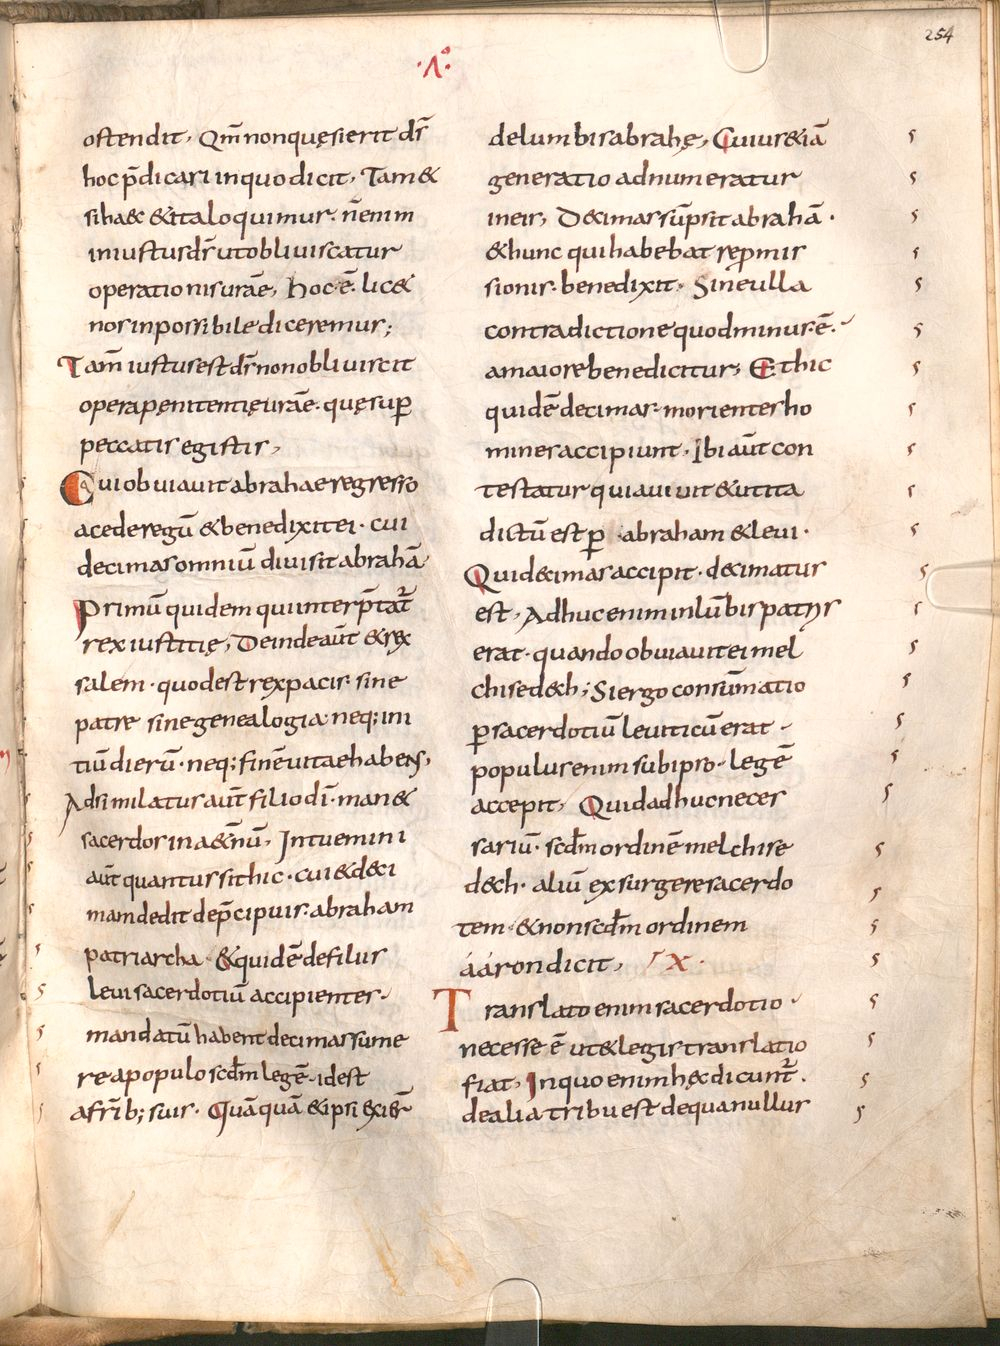 254
·Λ°·
ostendit, Qm̄ non quęsierit dr̄
hoc p̄dicari in quo dicit, Tam &
si haec & ita loquimur· n̄ enim
iniustus dr̄ ut obliviscatur
operationis urāe, hoc ē· lic&
nos inpossibile diceremus;
Tam̄ iustus est dr̄ non obliviscit
opera penitentię urāe· quę sup̄
peccatis egistis,
Cui obviavit abrahae regresso
a cede regū & benedixit ei· cui
decimas omniū divisit abrahā
Primū quidem qui interp̄tat̄
rex iustitię, Deinde aūt & rex
salem· quod est rex pacis· sine
patre sine genealogia neq; ini
tiū dierū· neq; finē vitae habens,
Adsimilatus aūt filio dī· man&
sacerdos in a&n̄ū, Intuemini
aūt quantus sit hic· cui & deci
mam dedit de p̄cipuis· abraham
patriarcha· & quidē de filius
levi sacerdotiū accipientes·
mandatū habent decimas sume
re a populo scđm legē· id est
a fr̄ib; suis· Quāquā & ipsi exier̄
de lumbis abrahę, Cuius & iā
generatio adnumeratur
in eis, Decimas sūpsit abrahā·
& hunc qui habebat repromis
sionis· benedixit, Sine ulla
contradictione quod minus ē·
a maiore benedicitur; Et hic
quidē decimas· morientes ho
mines accipiunt, Ibi aūt con
testatur quia vivit & ut ita
dictū est p̄ abraham & levi·
Qui decimas accipit· decimatus
est, Adhuc enim in lūbis patris
erat· quando obviavit ei mel
chisedech; Si ergo consūmatio
p̄ sacerdotiū leviticū erat·
populus enim sub ipso· legē
accepit, Quid adhuc neces
sariū· scđm ordinē melchise
dech· aliū exsurgere sacerdo
tem· & non scđm ordinem
áárón dicit, ⁊X·
Translato enim sacerdotio·
necesse ē ut & legis translatio
fiat, In quo enim hęc dicunt̄·
de alia tribu est de qua nullus